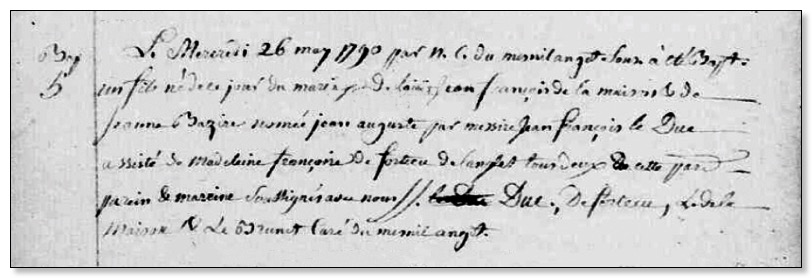 Bap
5
Le Mercredi 26 may 1790 par n. C. du mesnilangot Sous. à eté Bapt.
un fils né de ce jour du mariage de Jean françois de la maison & de
Jeanne Bazire nomée jean auguste par messire Jean françois le Duc
assisté de Madeleine françoise De fortecu tous deux de cette par
parein & mareine soussignés avec nous Duc., De fortecu, L. de la
Maison & Le Brunet Curé du mesnilangot.